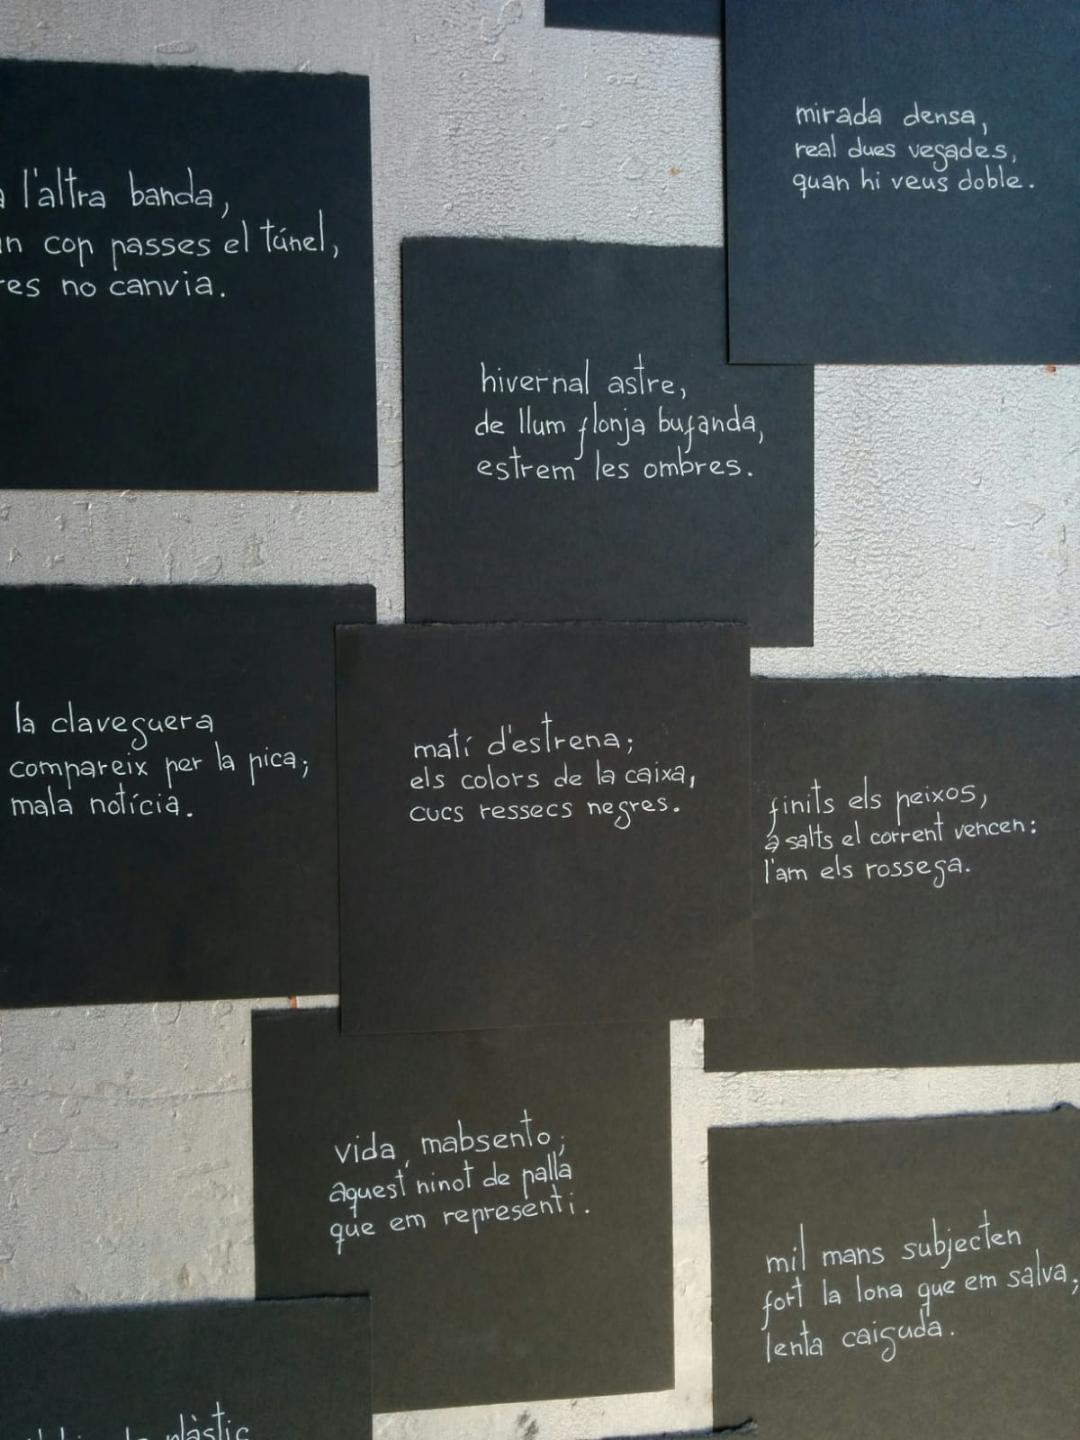 l'altra banda,
cop passes el túnel,
no canvia.
mirada densa,
real dues vegades,
quan hi veus doble.
hivernal astre,
de llum flonja bufanda,
estrem les ombres.
la claveguera
compareix per la pica;
mala notícia.
matí d'estrena;
els colors de la caixa,
cucs ressecs negres.
finits els peixos,
a salts el corrent vencen:
l'am els rossega.
vida, m'absento;
aquest ninot de palla
que em representi.
mil mans subjecten
fort la lona que em salva;
lenta caiguda.